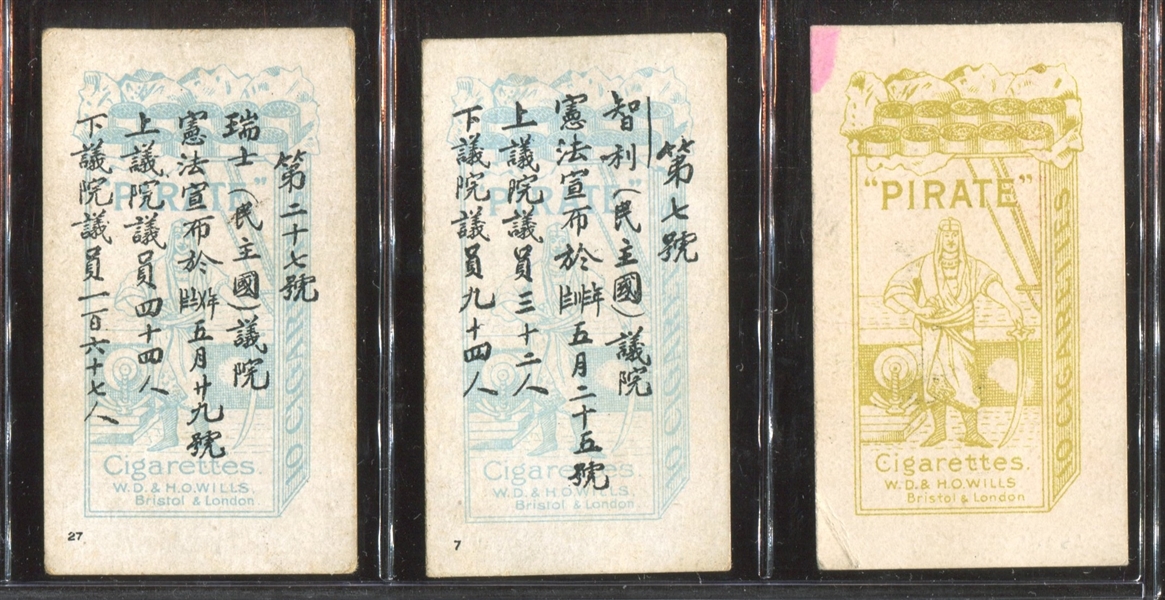 第二十七號
瑞士（民主國）議院
憲法宣布於五月廿九號
上議院議員四十四人
下議院議員一百六十七人
"PIRATE"
10 CIGARETTES
Cigarettes.
W.D. & H.O.WILLS,
Bristol & London
27
第七號
智利（民主國）議院
憲法宣布於五月二十五號
上議院議員三十二人
下議院議員九十四人
"PIRATE"
10 CIGARETTES
Cigarettes.
W.D. & H.O.WILLS,
Bristol & London
7
"PIRATE"
10 CIGARETTES
Cigarettes.
W.D. & H.O.WILLS
Bristol & London